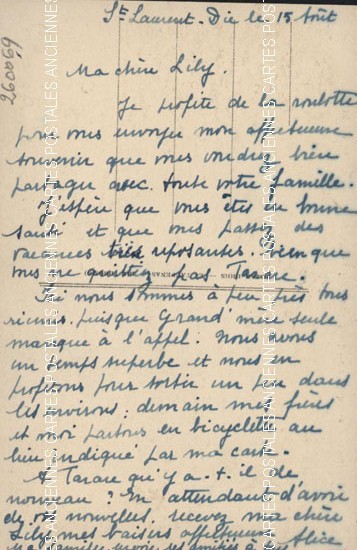 St Laurent - Die le 15 Août
260069
Ma chère Lily.
Je profite de la roulotte
pour vous envoyer mon affectueux
souvenir que vous voudrez bien
partager avec toute votre famille.
J'espère que vous êtes en bonne
santé et que vous passez des
vacances très reposantes bien que
vous ne quittiez pas Tarare.
Ici nous sommes à peu près tous
réunis, puisque Grand'mère seule
manque à l'appel. Nous avons
un temps superbe et nous en
profitons pour sortir un peu dans
les environs; demain mes frères
et moi partons en bicyclette au
lieu indiqué par ma carte.
A Tarare qu'y a-t-il de
nouveau ? En attendant d'avoir
de vos nouvelles, recevez ma chère
Lily mes baisers affectueux
Alice
CARTES POSTALES ANCIENNES